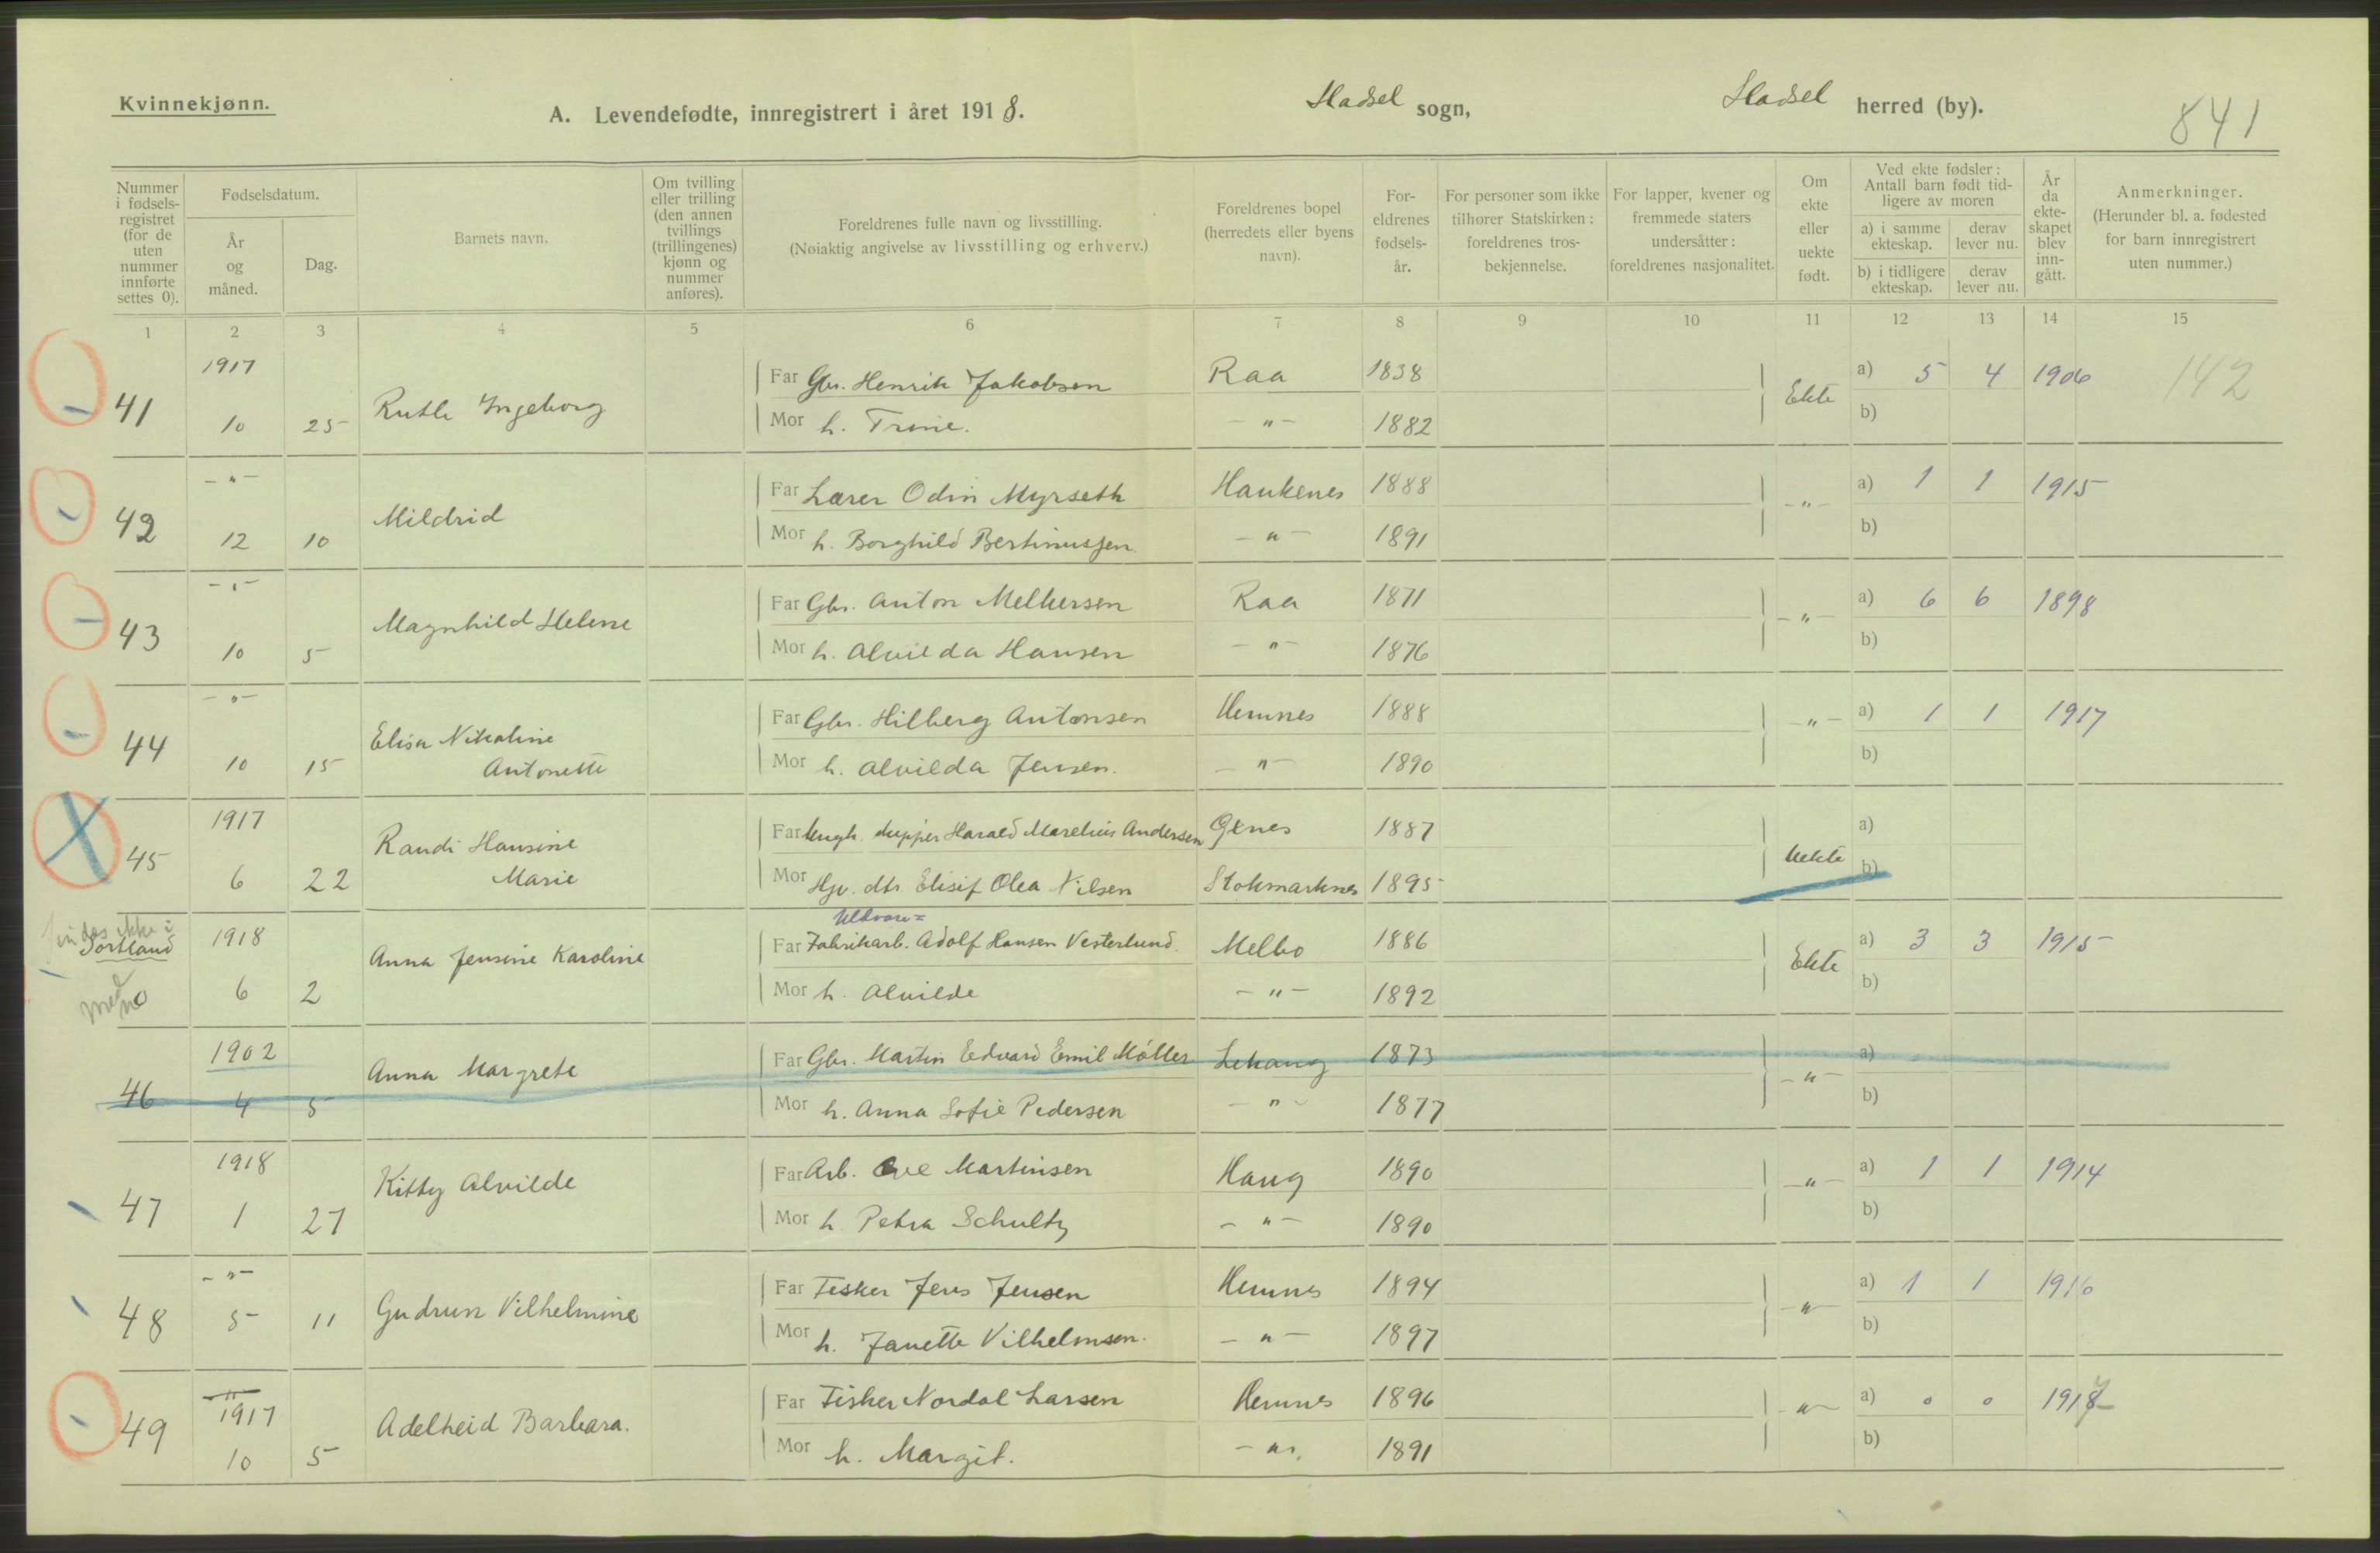 Kvinnekjønn.
A. Levendefødte, innregistrert i året 1918.
Hadsel sogn,
Hadsel herred (by).
841
Nummer i fødselsregistret (for de uten nummer innførte settes 0).
Fødselsdatum.
År og måned.
Dag.
Barnets navn.
Om tvilling eller trilling (den annen tvillings (trillingenes) kjønn og nummer anføres).
Foreldrenes fulle navn og livsstilling.
(Nøiaktig angivelse av livsstilling og erhverv.)
Foreldrenes bopel (herredets eller byens navn).
Foreldrenes fødselsår.
For personer som ikke tilhører Statskirken: foreldrenes trosbekjennelse.
For lapper, kvener og fremmede staters undersåtter: foreldrenes nasjonalitet.
Om ekte eller uekte født.
Ved ekte fødsler: Antall barn født tidligere av moren
a) i samme ekteskap.
derav lever nu.
b) i tidligere ekteskap.
derav lever nu.
År da ekteskapet blev inngått.
Anmerkninger.
(Herunder bl. a. fødested for barn innregistrert uten nummer.)
1 2 3 4 5 6 7 8 9 10 11 12 13 14 15
1917
Far Gbr. Henrik Jakobsen Raa 1838 a) 5 4 1906 142
41 10 25 Ruth Ingeborg Ekte
Mor h. Trine. - " - 1882 b)
- " -
Far Lærer Odin Myrseth Haukenes 1888 a) 1 1 1915
42 12 10 Mildrid - " -
Mor h. Borghild Bertinussen - " - 1891 b)
- " -
Far Gbr. Anton Melkersen Raa 1871 a) 6 6 1898
43 10 5 Magnhild Helene - " -
Mor h. Alvilda Hansen - " - 1876 b)
- " -
Far Gbr. Hilberg Antonsen Hemnes 1888 a) 1 1 1917
44 10 15 Elisa Nikoline Antonette - " -
Mor h. Alvilda Jensen. - " - 1890 b)
1917
Far Harald Marelius Andersen 1887 a)
45 6 22 Randi Hansine Marie Uekte
Mor Hjv. dtr. Elisif Olea Nilsen Stokmarknes 1895 b)
findes ikke i Sortland
1918
Uldvare=
Far Fabrikarb. Adolf Hansen Vesterlund. Melbo 1886 a) 3 3 1915
6 2 Anna Jensine Karoline Ekte
Mor h. Alvilde - " - 1892 b)
1902
Far Gbr. Martin Edvard Emil Möller Lekang 1873 a)
46 4 5 Anna Margrete - " -
Mor h. Anna Sofie Pedersen - " - 1877 b)
1918
Far Arb. Ove Martinsen Haug 1890 a) 1 1 1914
47 1 27 Kitty Alvilde - " -
Mor h. Petra Schultz - " - 1890 b)
- " -
Far Fisker Jens Jensen Hemnes 1894 a) 1 1 1916
48 5 11 Gudrun Vilhelmine - " -
Mor h. Janette Vilhelmsen. - " - 1897 b)
- " -
1917
Far Fisker Nordal Larsen Hemnes 1896 a) 0 0 1917
49 10 5 Adelheid Barbara. - " -
Mor h. Margit. - " - 1891 b)